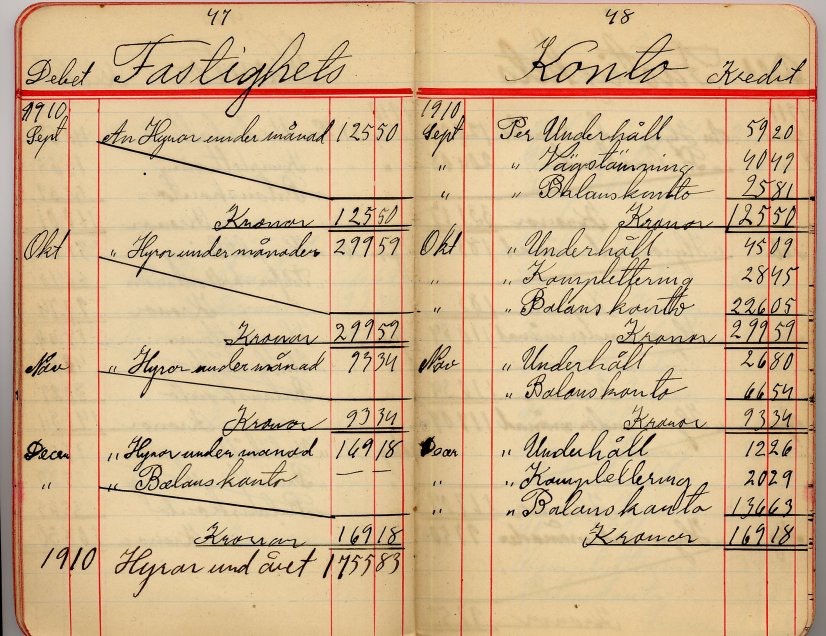 47
Debet Fastighets
1910
Sept An Hyror under månad 125 50
Kronor 125 50
Okt " Hyror under månaden 299 59
Kronor 299 59
Nov " Hyror under månad 93 34
Kronor 93 34
Decem " Hyror under månad 169 18
" " Balanskonto — —
Kronor 169 18
1910 Hyror und året 1755 83
48
Konto Kredit
1910
Sept Per Underhåll 59 20
" " Vägstämning 40 49
" " Balanskonto 25 81
Kronor 125 50
Okt " Underhåll 45 09
" " Komplettering 28 45
" " Balanskonto 226 05
Kronor 299 59
Nov " Underhåll 26 80
" Balanskonto 66 54
Kronor 93 34
Decem " Underhåll 12 26
" " Komplettering 20 29
" " Balanskonto 136 63
Kronor 169 18